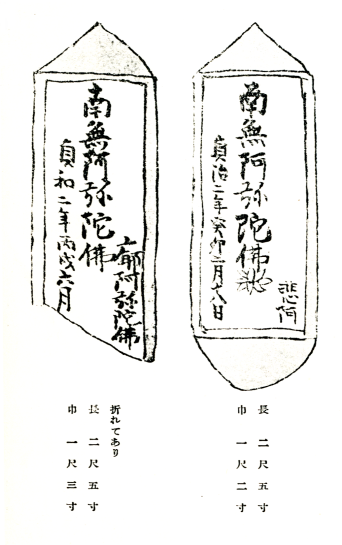 悲阿
南無阿弥陀佛
貞治二年癸卯二月十八日
長 二尺五寸
巾 一尺二寸
阿弥陀佛
南無阿弥陀佛
貞和二年丙戌六月
折れてあり
長 二尺五寸
巾 一尺三寸